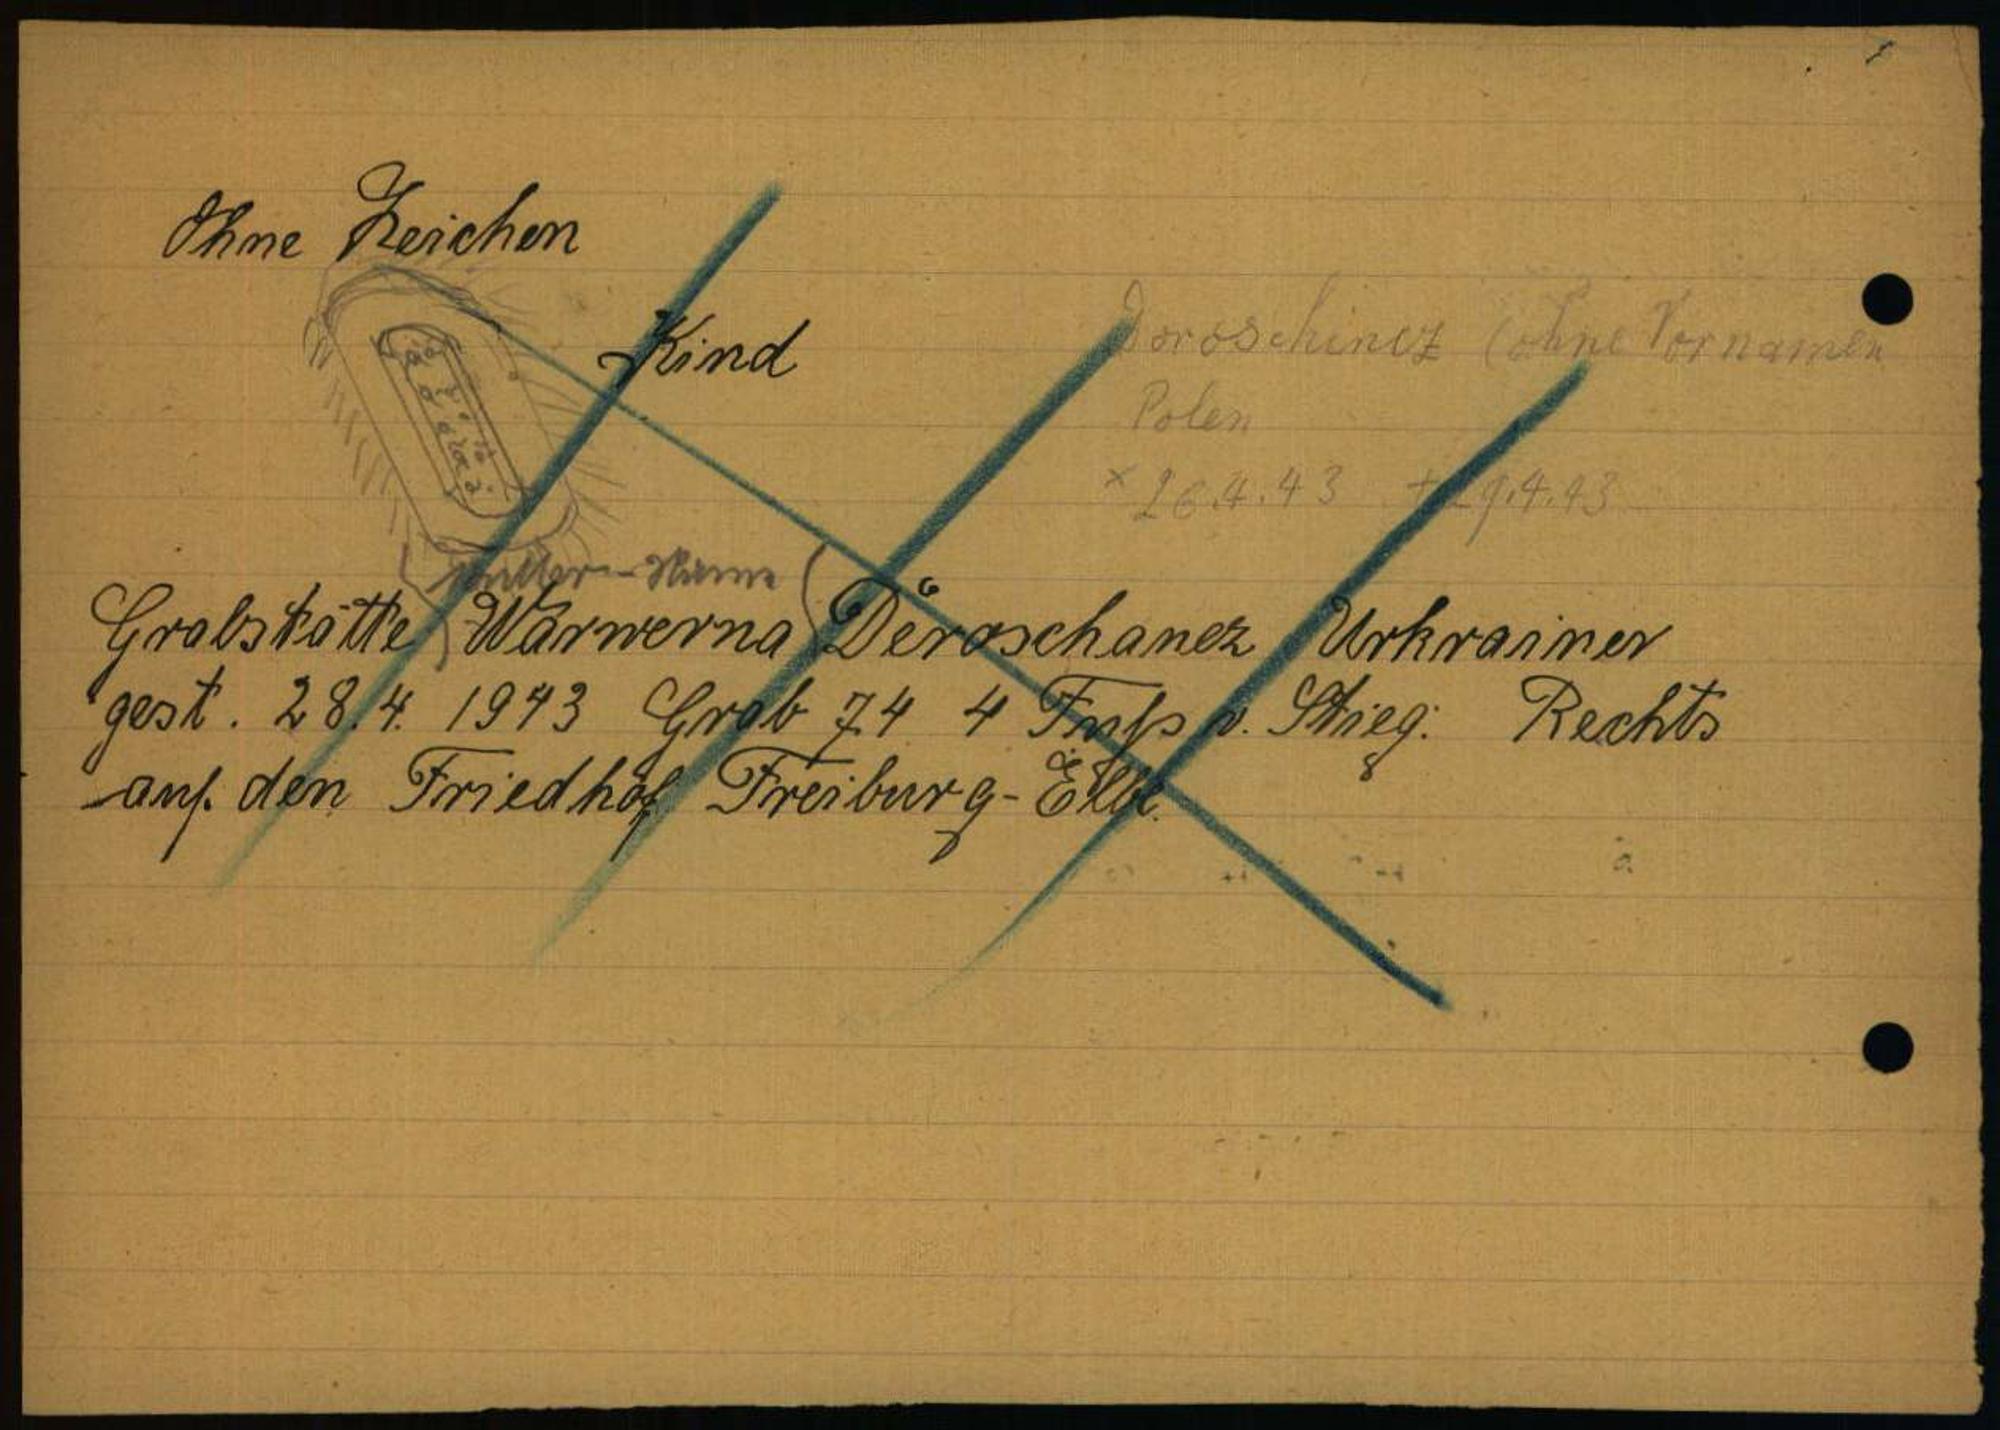 Ohne Zeichen
Kind
Doroschinez (ohne Vornamen
Polen
× 26.4.43 + 29.4.43
Mutter-Name
Grabstätte Warwerna (Deroschanez Urkrainer
gest. 28.4. 1943 Grab 74 4 Fuß v. Stieg. Rechts
auf den Friedhof Freiburg-Elbe.